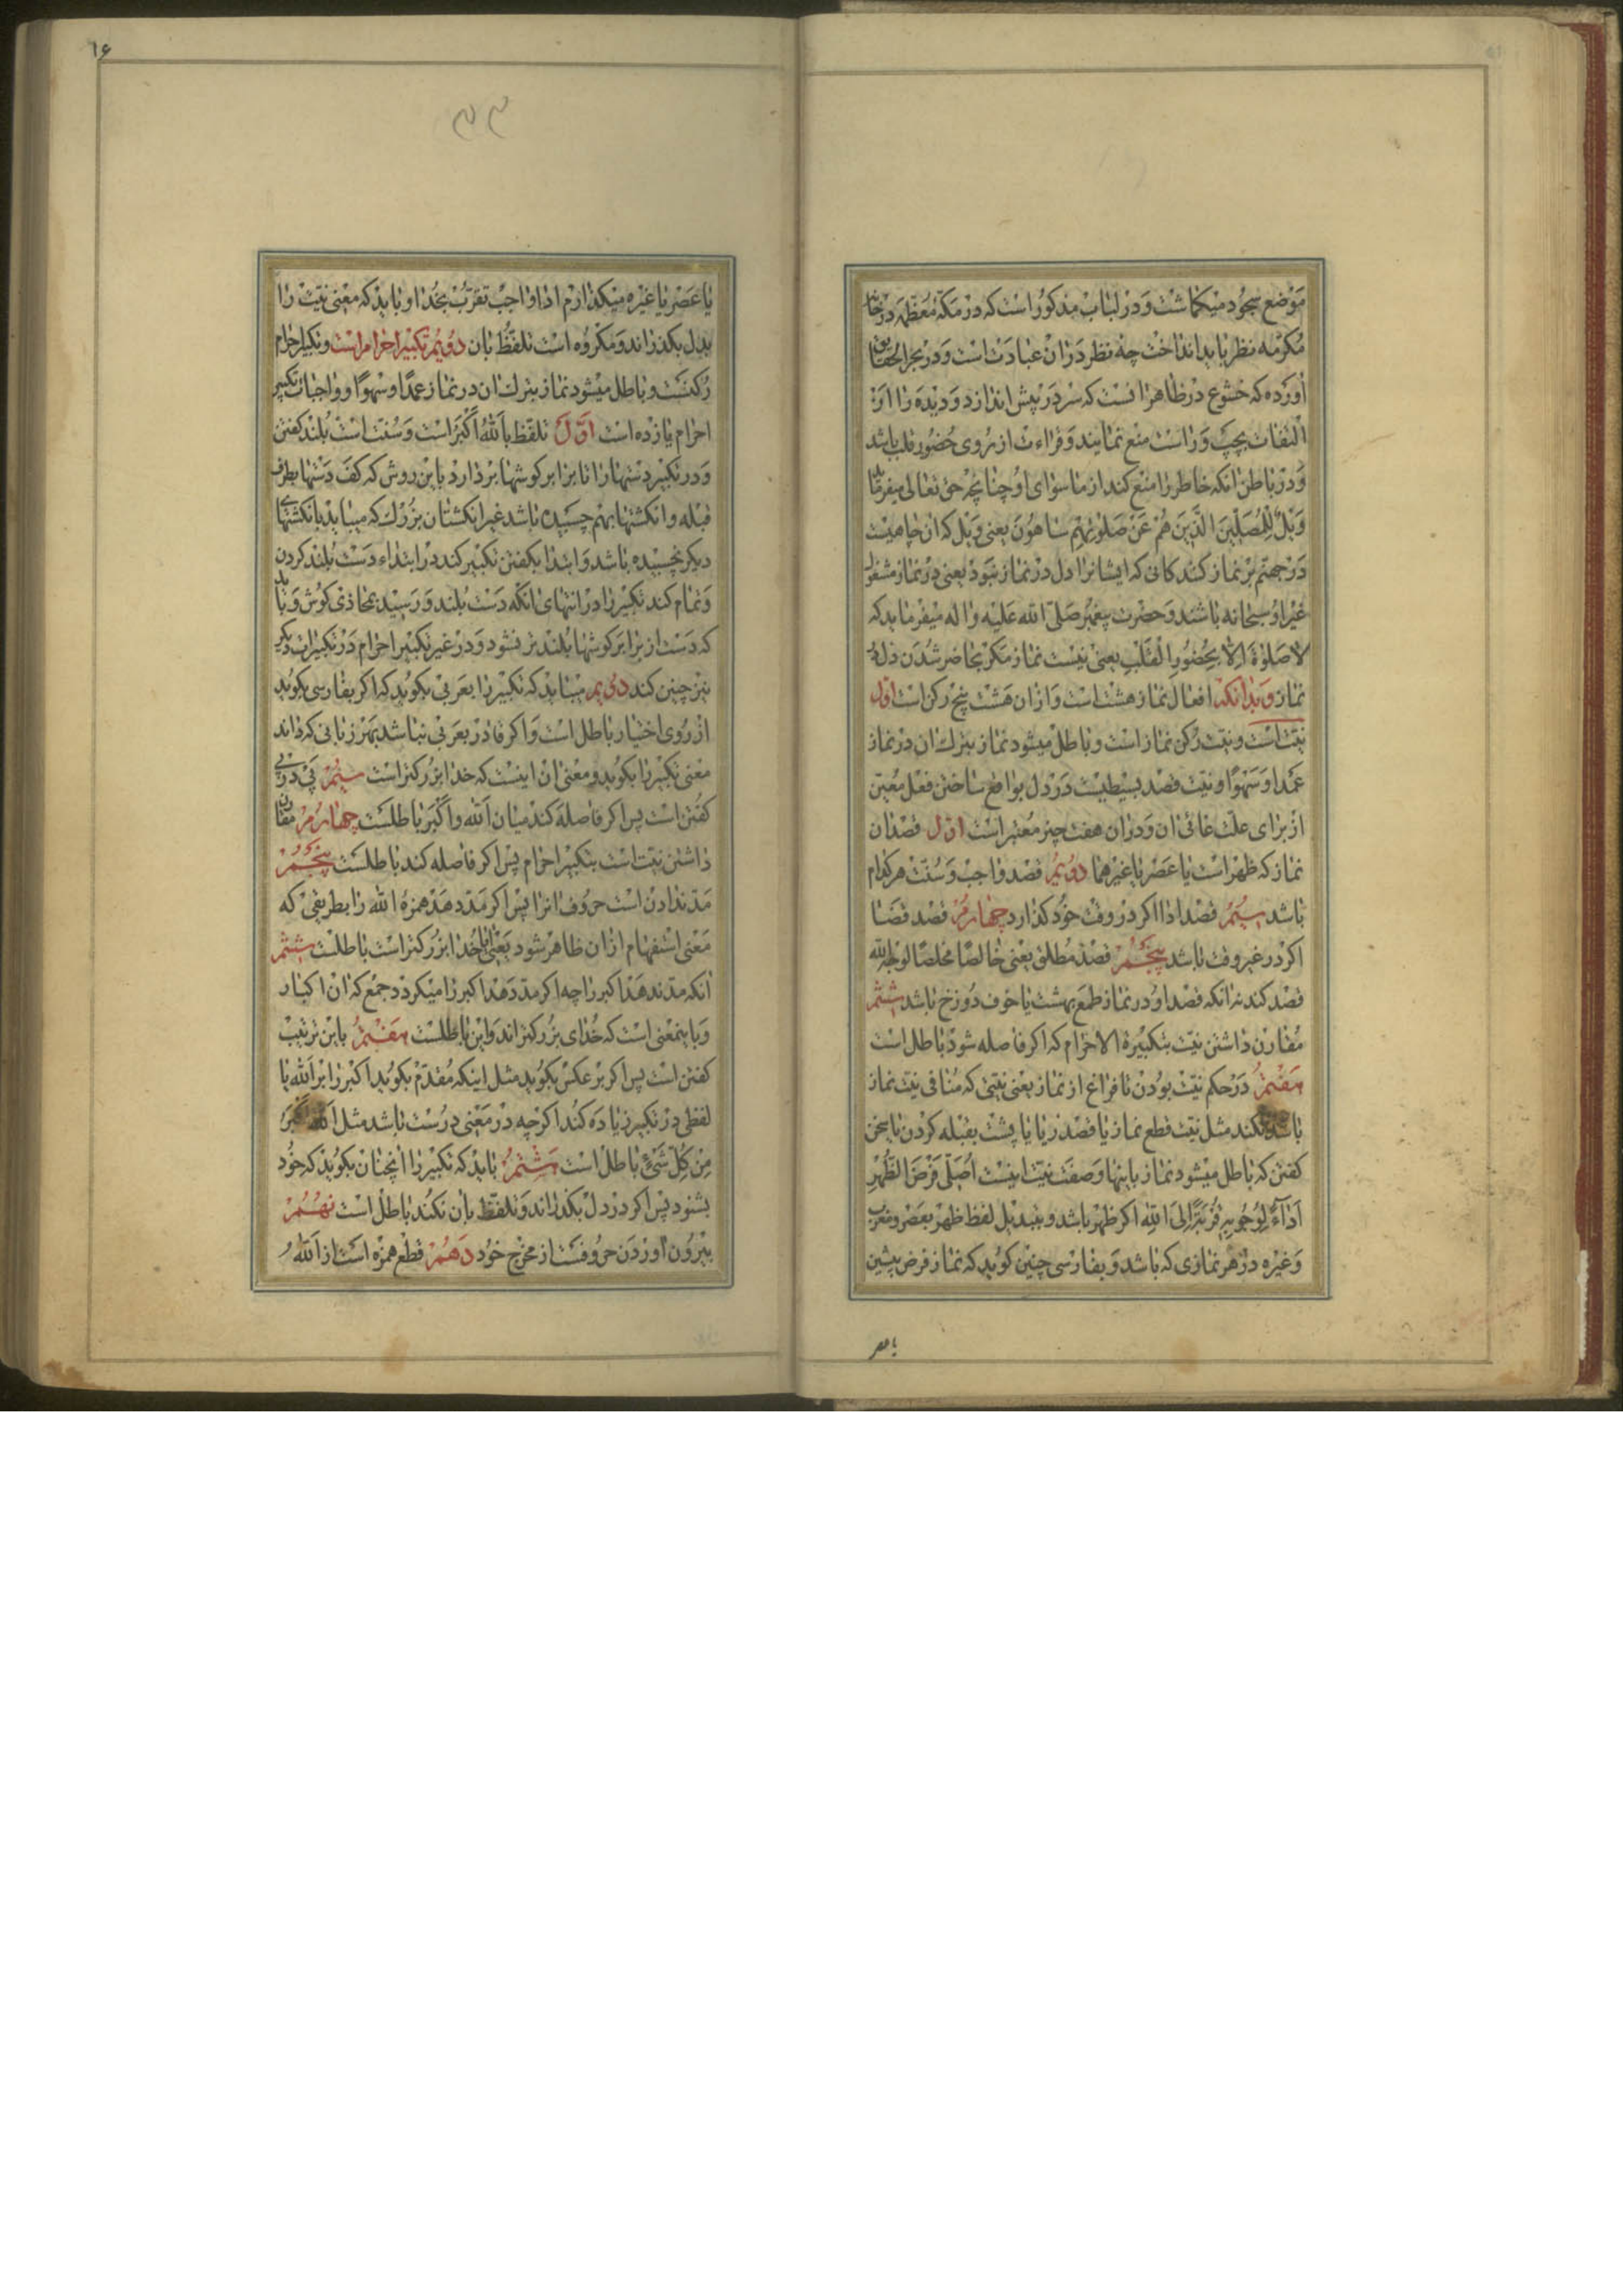 موضع سجود میکماشت و در لباب مذکور است که در مکّه معظمه در خانه
مکرمه نظر باید انداخت چه نظر در آن عبادت است و در بحر الحقایق
آورده که خشوع در ظاهر آنست که سر در پیش اندازد و دیده را از
التفات بچپ و راست منع نمایند و قراءت از روی حضور قلب باشد
و در باطن آنکه خاطر را منع کند از ماسوای او چنانچه حق تعالی میفرماید
وَیْلٌ لِلْمُصَلِّینَ الَّذِینَ هُمْ عَنْ صَلَوتِهِمْ سَاهُونَ یعنی ویل که آن چاهیست
در جهنم بر نماز کنندکانی که ایشانرا دل در نماز نبود یعنی در نماز مشغول
غیر او سبحانه باشند و حضرت پیغمبر صلّی الله علیه و اله میفرماید که
لا صلوة الّا بحضور القلب یعنی نیست نماز مکر بحاضر شدن دل در
نماز و بدانکه افعال نماز هشت است و از ان هشت پنج رکن است اوّل
نیّت است و نیّت رکن نماز است و باطل میشود نماز بترك ان در نماز
عمدا و سهوا و نیّت قصد بسیطیست در دل بواقع ساختن فعل معیّن
از برای علّت غائی ان و در ان هفت چیز معتبر است اوّل قصد ان
نماز که ظهر است یا عصر یا غیرهما دویّم قصد واجب و سنّت هر کدام
باشد سیّم قصد ادا اکر در وقت خود کذارد چهارم قصد قضا
اکر در غیر وقت باشد پنجم قصد مطلق یعنی خالصًا مخلصًا لوجه الله
قصد کند نه انکه قصد او در نماز طمع بهشت یا خوف دوزخ باشد ششم
مقارن داشتن نیّت بتکبیرة الاحرام که اکر فاصله شود باطل است
هفتم در حکم نیّت بودن تا فراغ از نماز یعنی نیّتی که منافی نیّت نماز
باشد نکند مثل نیّت قطع نماز یا قصد ریا یا پشت بقبله کردن یا سخن
کفتن که باطل میشود نماز باینها و صفت نیّت اینست اُصَلّی فَرْضَ الظُّهْرِ
اَداءً لِوُجُوبِهِ قُرْبَةً اِلَی اللهِ اکر ظهر باشد و تبدیل لفظ ظهر بعصر و مغرب
و غیره در هر نمازی که باشد و بفارسی چنین کوید که نماز فرض پیشین
یا عصر
۱۶
۳۳
یا عصر یا غیره میکذارم ادا واجب تقرّب بخدا و باید که معنی نیّت را
بدل بکذراند و مکروه است تلفّظ بان دویّم تکبیر احرام است و تکبیر احرام
رکنست و باطل میشود نماز بترك ان در نماز عمدًا و سهوًا و واجبات تکبیر
احرام یازده است اوّل تلفّظ بالله اکبر است و سنّت است بلند کفتن
و در تکبیر دستها را تا برابر کوشها بردارد باین روش که کف دستها بطرف
قبله و انکشتها بهم چسبیده باشد غیر انکشتان بزرك که میباید بانکشتهای
دیکر نچسبیده باشد و ابتدا بکفتن تکبیر کند در ابتداء دست بلند کردن
و تمام کند تکبیر را در انتهای انکه دست بلند و رسید بمحاذی کوش و باید
که دست از برابر کوشها بلند تر نشود و در غیر تکبیر احرام در تکبیرات دیکر
نیز چنین کند دویّم میباید که تکبیر را بعربی بکوید که اکر بفارسی بکوید
از روی اختیار باطل است و اکر قادر بعربی نباشد بهر زبانی که داند
معنی تکبیر را بکوید و معنی ان اینست که خدا بزرکتر است سیّم پی در پی
کفتن است پس اکر فاصله کند میان الله و اکبر باطلست چهارم مقارن
داشتن نیّت است بتکبیر احرام پس اکر فاصله کند باطلست پنجم
مدّ ندادن است حروف انرا پس اکر مدّ دهد همزهٔ الله را بطریقی که
معنی استفهام ازان ظاهر شود یعنی ایا خدا بزرکتر است باطلست ششم
انکه مدّ ندهد اکبر را چه اکر مدّ دهد اکبر را میکردد جمع که ان اکبار
و باینمعنی است که خدای بزرکتراند و این باطلست هفتم باین ترتیب
کفتن است پس اکر بر عکس بکوید مثل اینکه مقدّم بکوید اکبر را بر الله یا
لفظی در تکبیر زیاده کند اکرچه در معنی درست باشد مثل الله اکبر
مِن کُلِّ شَیْءٍ باطل است هشتم باید که تکبیر را انچنان بکوید که خود
بشنود پس اکر در دل بکذراند و تلفّظ بان نکند باطل است نهم
بیرون اوردن حروفست از مخرج خود دهم قطع همزه است از الله